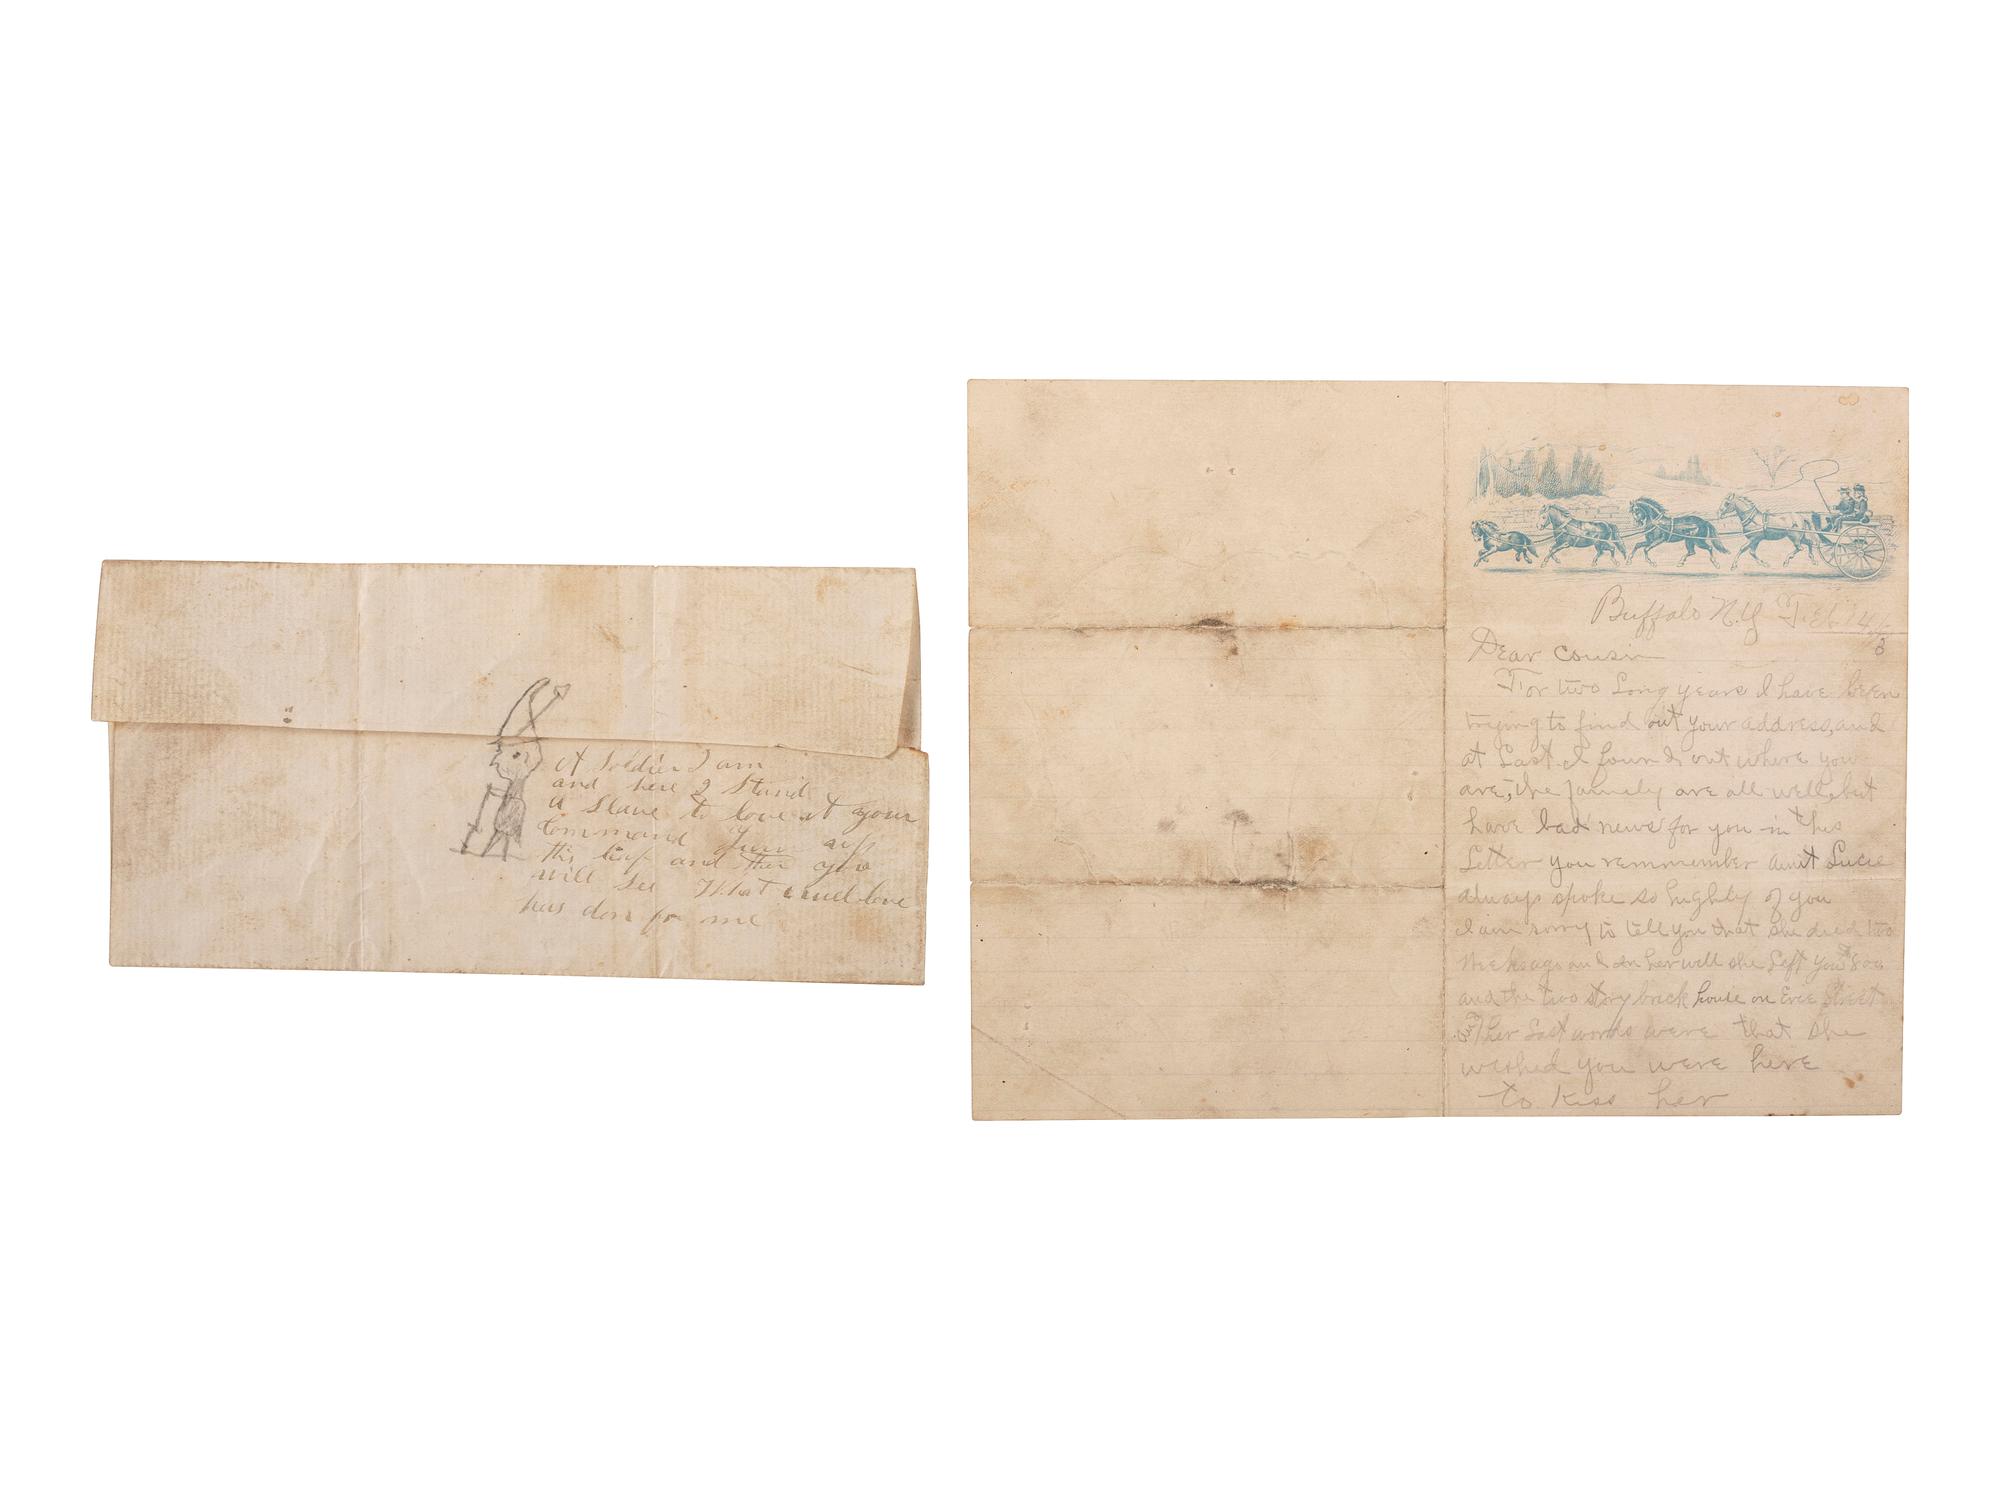 A Soldier I am
and here I Stand
a Slave to love at your
Command Turn up
this leaf and then you
will See What cruel love
has don for me
Buffalo N.Y Feb 14
Dear Cousin
For two Long years I have been
trying to find out your address, and
at Last I found out where you
are, the family are all well, but
have bad news for you in this
Letter you remmember aunt Lucie
always spoke so highly of you
I am sorry to tell you that she died two
weeks ago and in her will she Left you
and the two story brick house on Erie Street
and her Last words were that she
wished you were here
to Kiss her